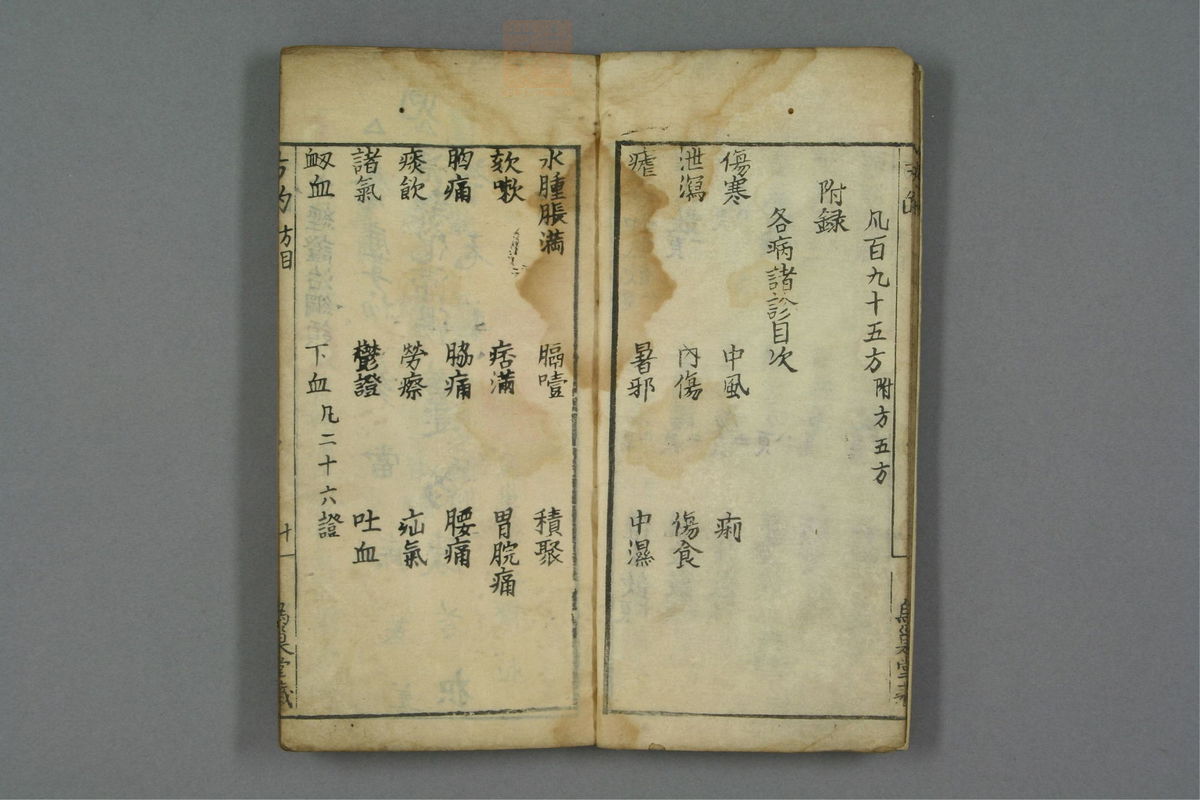 凡百九十五方附方五方
附録
各病諸診目次
傷寒 中風 痢
泄瀉 內傷 傷食
瘧 暑邪 中濕
水腫脹滿 膈噎 積聚
欬嗽 痞滿 胃脘痛
胸痛 脇痛 腰痛
痰飲 勞瘵 疝氣
諸氣 鬱證 吐血
衂血 下血 凡二十六證
方目
十